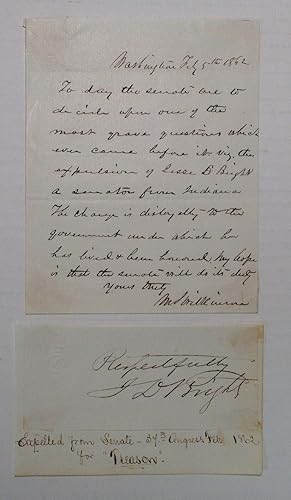 Washington Feby 5th 1862
To day the senate are to
decide upon one of the
most grave questions which
ever came before it viz, the
expulsion of Jesse D Bright
a senator from Indiana
The charge is disloyalty to the
government under which he
has lived & been honored, My hope
is that the senate will do its duty
Yours truly
Respectfully
J D Bright
Expelled from Senate - 37th Congress Feb. 1862
for "Treason".